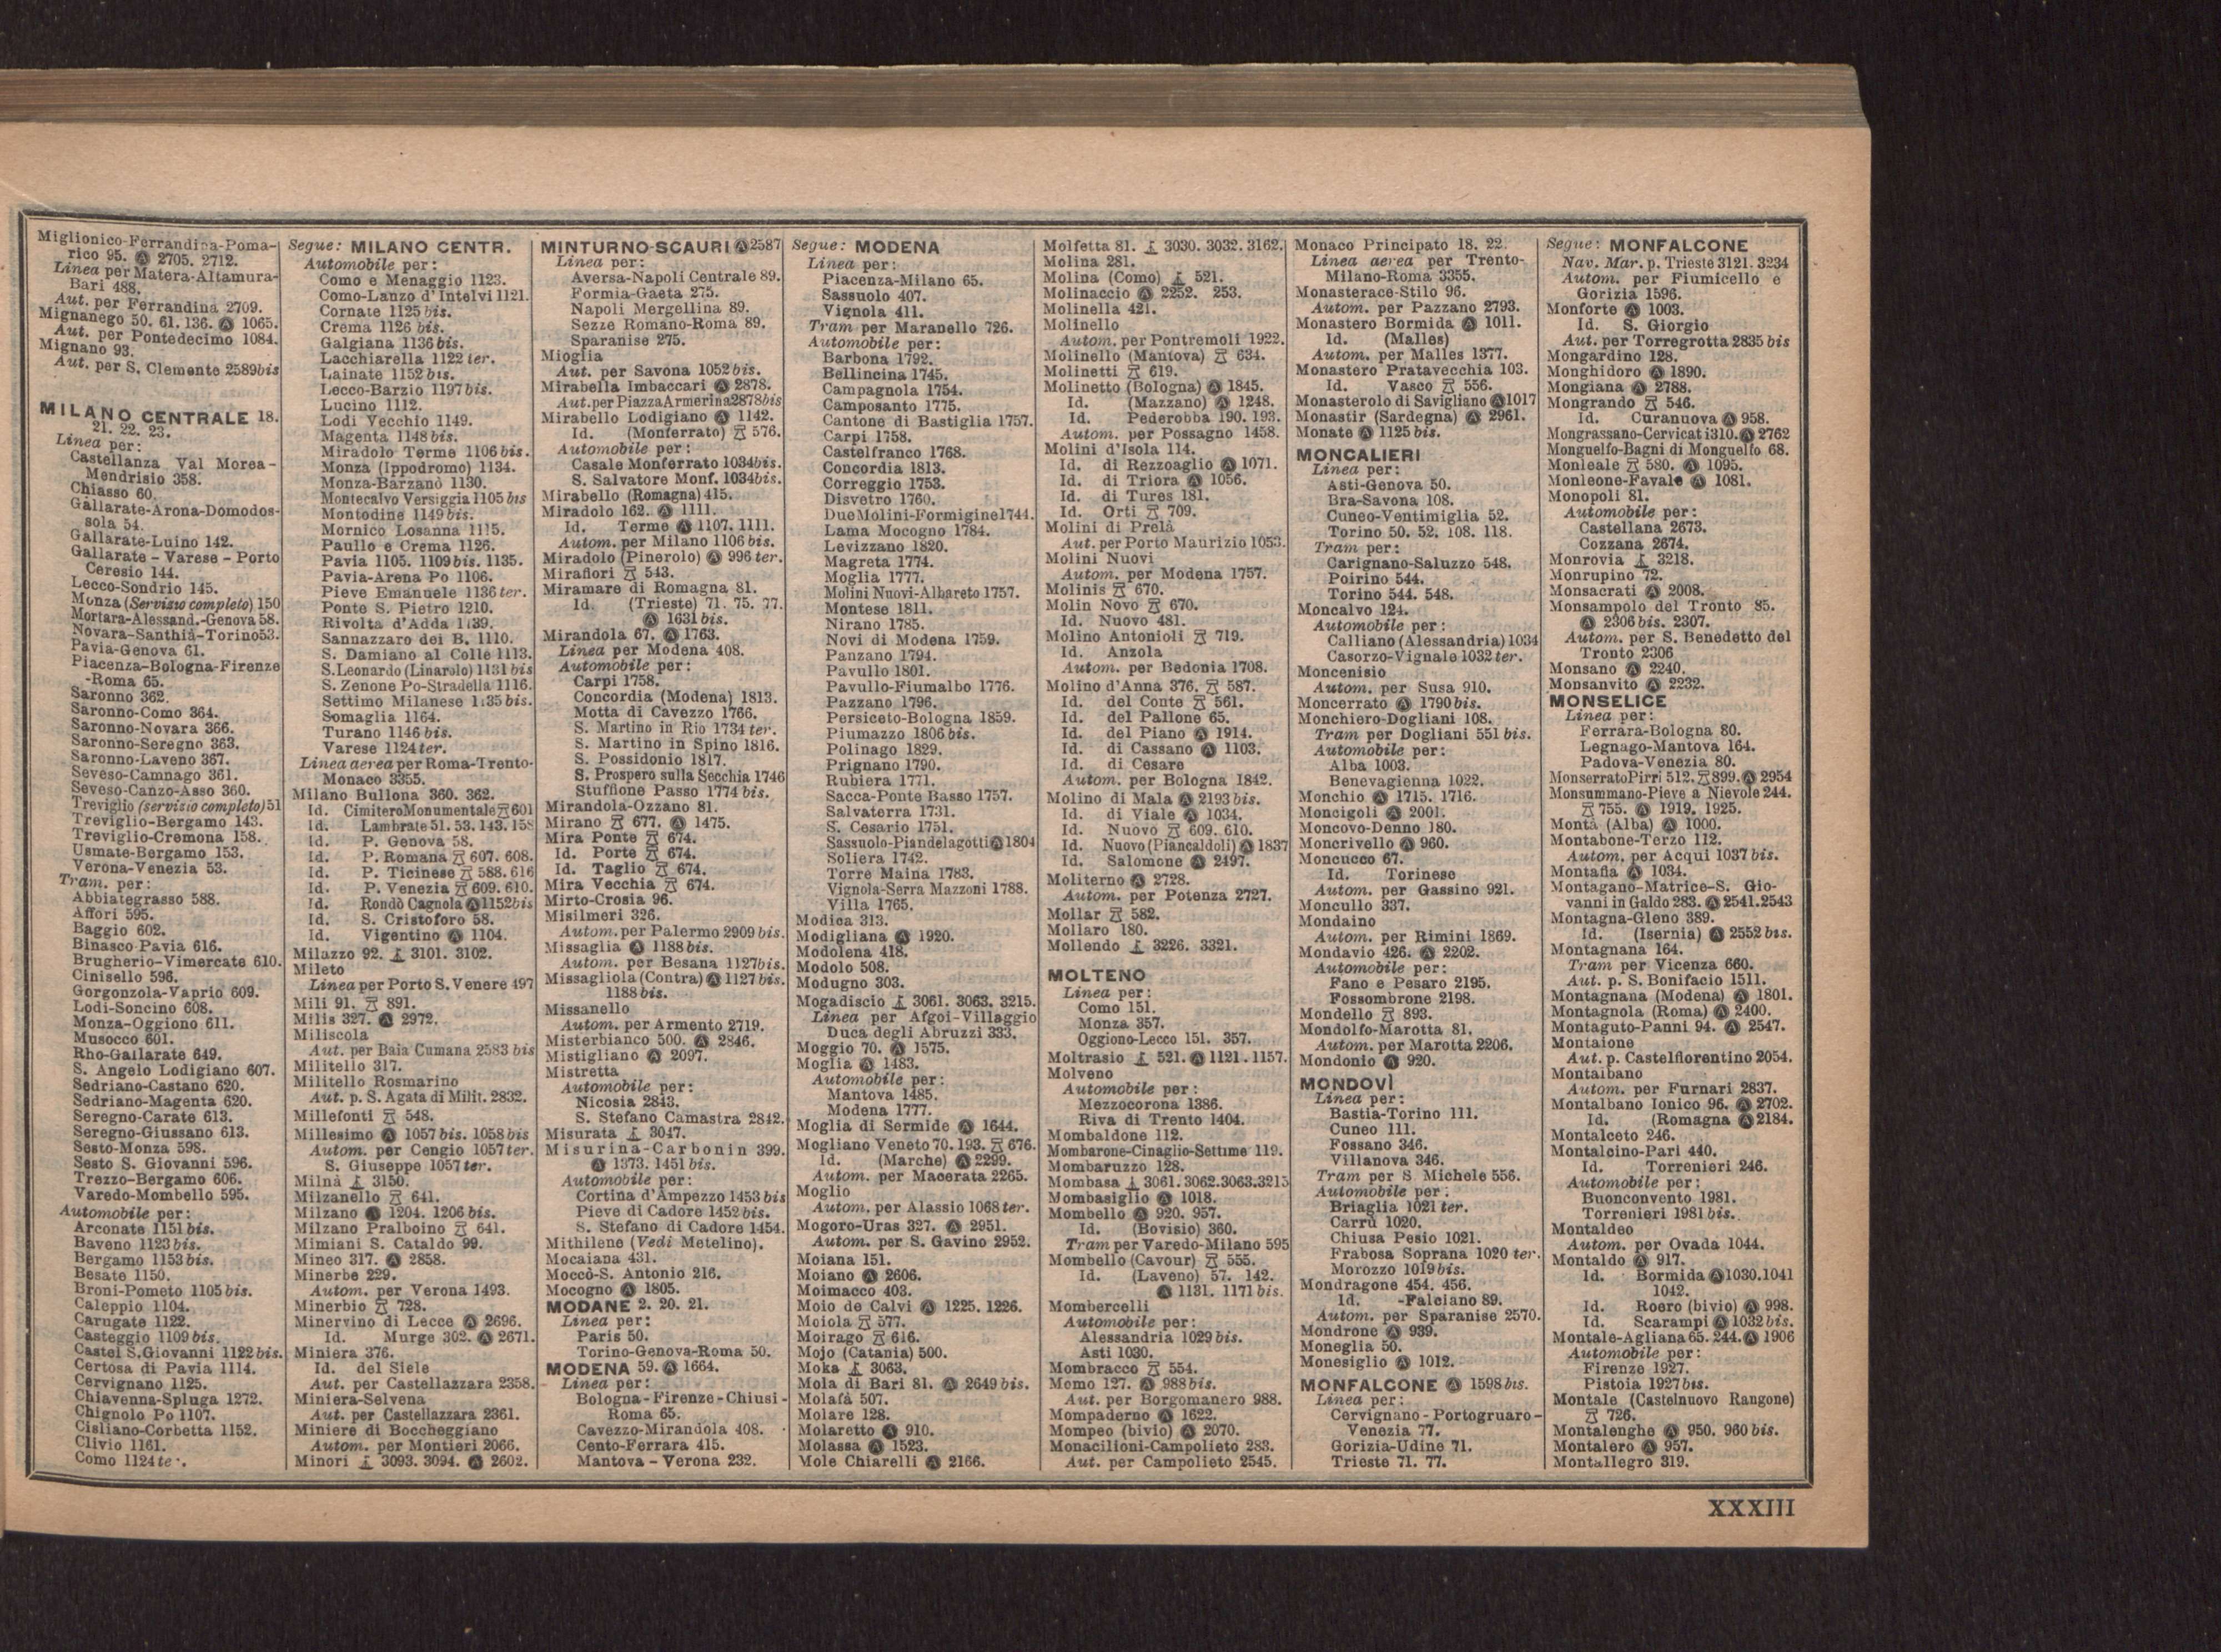 Miglionico-Ferrandina-Poma-
rico 95. Ⓐ 2705. 2712.
Linea per Matera-Altamura-
Bari 488.
Aut. per Ferrandina 2709.
Mignanego 50. 61. 136. Ⓐ 1065.
Aut. per Pontedecimo 1084.
Mignano 93.
Aut. per S. Clemente 2589bis
MILANO CENTRALE 18.
21. 22. 23.
Linea per:
Castellanza Val Morea-
Mendrisio 358.
Chiasso 60.
Gallarate-Arona-Domodos-
sola 54.
Gallarate-Luino 142.
Gallarate - Varese - Porto
Ceresio 144.
Lecco-Sondrio 145.
Monza (Servizio completo) 150
Mortara-Alessand.-Genova 58.
Novara-Santhià-Torino53.
Pavia-Genova 61.
Piacenza-Bologna-Firenze
-Roma 65.
Saronno 362.
Saronno-Como 364.
Saronno-Novara 366.
Saronno-Seregno 363.
Saronno-Laveno 367.
Seveso-Camnago 361.
Seveso-Canzo-Asso 360.
Treviglio (servizio completo) 51
Treviglio-Bergamo 143.
Treviglio-Cremona 158.
Usmate-Bergamo 153.
Verona-Venezia 53.
Tram. per:
Abbiategrasso 588.
Affori 595.
Baggio 602.
Binasco-Pavia 616.
Brugherio-Vimercate 610.
Cinisello 596.
Gorgonzola-Vaprio 609.
Lodi-Soncino 608.
Monza-Oggiono 611.
Musocco 601.
Rho-Gallarate 649.
S. Angelo Lodigiano 607.
Sedriano-Castano 620.
Sedriano-Magenta 620.
Seregno-Carate 613.
Seregno-Giussano 613.
Sesto-Monza 598.
Sesto S. Giovanni 596.
Trezzo-Bergamo 606.
Varedo-Mombello 595.
Automobile per:
Arconate 1151 bis.
Baveno 1123 bis.
Bergamo 1153 bis.
Besate 1150.
Broni-Pometo 1105 bis.
Caleppio 1104.
Carugate 1122.
Casteggio 1109 bis.
Castel S.Giovanni 1122 bis.
Certosa di Pavia 1114.
Cervignano 1125.
Chiavenna-Spluga 1272.
Chignolo Po 1107.
Cisliano-Corbetta 1152.
Clivio 1161.
Como 1124
Segue: MILANO CENTR.
Automobile per:
Como e Menaggio 1123.
Como-Lanzo d'Intelvi 1121.
Cornate 1125 bis.
Crema 1126 bis.
Galgiana 1136 bis.
Lacchiarella 1122 ter.
Lainate 1152 bis.
Lecco-Barzio 1197 bis.
Lucino 1112.
Lodi Vecchio 1149.
Magenta 1148 bis.
Miradolo Terme 1106 bis.
Monza (Ippodromo) 1134.
Monza-Barzanò 1130.
Montecalvo Versiggia 1105 bis
Montodine 1149 bis.
Mornico Losanna 1115.
Paullo e Crema 1126.
Pavia 1105. 1109 bis. 1135.
Pavia-Arena Po 1106.
Pieve Emanuele 1136 ter.
Ponte S. Pietro 1210.
Rivolta d'Adda 1139.
Sannazzaro dei B. 1110.
S. Damiano al Colle 1113.
S.Leonardo (Linarolo) 1131 bis
S. Zenone Po-Stradella 1116.
Settimo Milanese 1135 bis.
Somaglia 1164.
Turano 1146 bis.
Varese 1124 ter.
Linea aerea per Roma-Trento-
Monaco 3355.
Milano Bullona 360. 362.
Id. CimiteroMonumentale 601
Id. Lambrate 51. 53. 143. 158
Id. P. Genova 58.
Id. P. Romana 607. 608.
Id. P. Ticinese 588. 616
Id. P. Venezia 609. 610.
Id. Rondò Cagnola Ⓐ 1152 bis
Id. S. Cristoforo 58.
Id. Vigentino Ⓐ 1104.
Milazzo 92. 3101. 3102.
Mileto
Linea per Porto S. Venere 497
Mili 91. 891.
Milis 327. Ⓐ 2972.
Miliscola
Aut. per Baia Cumana 2583 bis
Militello 317.
Militello Rosmarino
Aut. p. S. Agata di Milit. 2832.
Millefonti 548.
Millesimo Ⓐ 1057 bis. 1058 bis
Autom. per Cengio 1057 ter.
S. Giuseppe 1057 ter.
Milnà 3150.
Milzanello 641.
Milzano Ⓐ 1204. 1206 bis.
Milzano Pralboino 641.
Mimiani S. Cataldo 99.
Mineo 317. Ⓐ 2858.
Minerbe 229.
Autom. per Verona 1493.
Minerbio 728.
Minervino di Lecce Ⓐ 2696.
Id. Murge 302. Ⓐ 2671.
Miniera 376.
Id. del Siele
Aut. per Castellazzara 2358.
Miniera-Selvena
Aut. per Castellazzara 2361.
Miniere di Boccheggiano
Autom. per Montieri 2066.
Minori 3093. 3094. Ⓐ 2602.
MINTURNO-SCAURI Ⓐ 2587
Linea per:
Aversa-Napoli Centrale 89.
Formia-Gaeta 275.
Napoli Mergellina 89.
Sezze Romano-Roma 89.
Sparanise 275.
Mioglia
Aut. per Savona 1052 bis.
Mirabella Imbaccari Ⓐ 2878.
Aut.per PiazzaArmerina2878bis
Mirabello Lodigiano Ⓐ 1142.
Id. (Monferrato) 576.
Automobile per:
Casale Monferrato 1034bis.
S. Salvatore Monf. 1034bis.
Mirabello (Romagna) 415.
Miradolo 162. Ⓐ 1111.
Id. Terme Ⓐ 1107. 1111.
Autom. per Milano 1106 bis.
Miradolo (Pinerolo) Ⓐ 996 ter.
Mirafiori 543.
Miramare di Romagna 81.
Id. (Trieste) 71. 75. 77.
Ⓐ 1631 bis.
Mirandola 67. Ⓐ 1763.
Linea per Modena 408.
Automobile per:
Carpi 1758.
Concordia (Modena) 1813.
Motta di Cavezzo 1766.
S. Martino in Rio 1734 ter.
S. Martino in Spino 1816.
S. Possidonio 1817.
S. Prospero sulla Secchia 1746
Stuffione Passo 1774 bis.
Mirandola-Ozzano 81.
Mirano 677. Ⓐ 1475.
Mira Ponte 674.
Id. Porte 674.
Id. Taglio 674.
Mira Vecchia 674.
Mirto-Crosia 96.
Misilmeri 326.
Autom. per Palermo 2909 bis.
Missaglia Ⓐ 1188 bis.
Autom. per Besana 1127bis.
Missagliola (Contra) Ⓐ 1127 bis.
1188 bis.
Missanello
Autom. per Armento 2719.
Misterbianco 500. Ⓐ 2846.
Mistigliano Ⓐ 2097.
Mistretta
Automobile per:
Nicosia 2843.
S. Stefano Camastra 2842.
Misurata 3047.
Misurina-Carbonin 399.
Ⓐ 1373. 1451 bis.
Automobile per:
Cortina d'Ampezzo 1453 bis
Pieve di Cadore 1452 bis.
S. Stefano di Cadore 1454.
Mithilene (Vedi Metelino).
Mocaiana 431.
Moccò-S. Antonio 216.
Mocogno Ⓐ 1805.
MODANE 2. 20. 21.
Linea per:
Paris 50.
Torino-Genova-Roma 50.
MODENA 59. Ⓐ 1664.
Linea per:
Bologna-Firenze-Chiusi-
Roma 65.
Cavezzo-Mirandola 408.
Cento-Ferrara 415.
Mantova - Verona 232.
Segue: MODENA
Linea per:
Piacenza-Milano 65.
Sassuolo 407.
Vignola 411.
Tram per Maranello 726.
Automobile per:
Barbona 1792.
Bellincina 1745.
Campagnola 1754.
Camposanto 1775.
Cantone di Bastiglia 1757.
Carpi 1758.
Castelfranco 1768.
Concordia 1813.
Correggio 1753.
Disvetro 1760.
DueMolini-Formigine1744.
Lama Mocogno 1784.
Levizzano 1820.
Magreta 1774.
Moglia 1777.
Molini Nuovi-Albareto 1757.
Montese 1811.
Nirano 1785.
Novi di Modena 1759.
Panzano 1794.
Pavullo 1801.
Pavullo-Fiumalbo 1776.
Pazzano 1796.
Persiceto-Bologna 1859.
Piumazzo 1806 bis.
Polinago 1829.
Prignano 1790.
Rubiera 1771.
Sacca-Ponte Basso 1757.
Salvaterra 1731.
S. Cesario 1751.
Sassuolo-Piandelagotti Ⓐ 1804
Soliera 1742.
Torre Maina 1783.
Vignola-Serra Mazzoni 1788.
Villa 1765.
Modica 313.
Modigliana Ⓐ 1920.
Modolena 418.
Modolo 508.
Modugno 303.
Mogadiscio 3061. 3063. 3215.
Linea per Afgoi-Villaggio
Duca degli Abruzzi 333.
Moggio 70. Ⓐ 1575.
Moglia Ⓐ 1483.
Automobile per:
Mantova 1485.
Modena 1777.
Moglia di Sermide Ⓐ 1644.
Mogliano Veneto 70. 193. 676.
Id. (Marche) Ⓐ 2299.
Autom. per Macerata 2265.
Moglio
Autom. per Alassio 1068 ter.
Mogoro-Uras 327. Ⓐ 2951.
Autom. per S. Gavino 2952.
Moiana 151.
Moiano Ⓐ 2606.
Moimacco 403.
Moio de Calvi Ⓐ 1225. 1226.
Moiola 577.
Moirago 616.
Mojo (Catania) 500.
Moka 3063.
Mola di Bari 81. Ⓐ 2649 bis.
Molafà 507.
Molare 128.
Molaretto Ⓐ 910.
Molassa Ⓐ 1523.
Mole Chiarelli Ⓐ 2166.
Molfetta 81. 3030. 3032. 3162.
Molina 281.
Molina (Como) 521.
Molinaccio Ⓐ 2252. 253.
Molinella 421.
Molinello
Autom. per Pontremoli 1922.
Molinello (Mantova) 634.
Molinetti 619.
Molinetto (Bologna) Ⓐ 1845.
Id. (Mazzano) Ⓐ 1248.
Id. Pederobba 190. 193.
Autom. per Possagno 1458.
Molini d'Isola 114.
Id. di Rezzoaglio Ⓐ 1071.
Id. di Triora Ⓐ 1056.
Id. di Tures 181.
Id. Orti 709.
Molini di Prelà
Aut. per Porto Maurizio 1053.
Molini Nuovi
Autom. per Modena 1757.
Molinis 670.
Molin Novo 670.
Id. Nuovo 481.
Molino Antonioli 719.
Id. Anzola
Autom. per Bedonia 1708.
Molino d'Anna 376. 587.
Id. del Conte 561.
Id. del Pallone 65.
Id. del Piano Ⓐ 1914.
Id. di Cassano Ⓐ 1103.
Id. di Cesare
Autom. per Bologna 1842.
Molino di Mala Ⓐ 2193 bis.
Id. di Viale Ⓐ 1034.
Id. Nuovo 609. 610.
Id. Nuovo (Piancaldoli) Ⓐ 1837
Id. Salomone Ⓐ 2497.
Moliterno Ⓐ 2728.
Autom. per Potenza 2727.
Mollar 582.
Mollaro 180.
Mollendo 3226. 3321.
MOLTENO
Linea per:
Como 151.
Monza 357.
Oggiono-Lecco 151. 357.
Moltrasio 521. Ⓐ 1121. 1157.
Molveno
Automobile per:
Mezzocorona 1386.
Riva di Trento 1404.
Mombaldone 112.
Mombarone-Cinaglio-Settime 119.
Mombaruzzo 128.
Mombasa 3061.3062.3063.3215
Mombasiglio Ⓐ 1018.
Mombello Ⓐ 920. 957.
Id. (Bovisio) 360.
Tram per Varedo-Milano 595
Mombello (Cavour) 555.
Id. (Laveno) 57. 142.
Ⓐ 1131. 1171 bis.
Mombercelli
Automobile per:
Alessandria 1029 bis.
Asti 1030.
Mombracco 554.
Momo 127. Ⓐ 988 bis.
Aut. per Borgomanero 988.
Mompaderno Ⓐ 1622.
Mompeo (bivio) Ⓐ 2070.
Monacilioni-Campolieto 283.
Aut. per Campolieto 2545.
Monaco Principato 18. 22.
Linea aerea per Trento-
Milano-Roma 3355.
Monasterace-Stilo 96.
Autom. per Pazzano 2793.
Monastero Bormida Ⓐ 1011.
Id. (Malles)
Autom. per Malles 1377.
Monastero Pratavecchia 103.
Id. Vasco 556.
Monasterolo di Savigliano Ⓐ 1017
Monastir (Sardegna) Ⓐ 2961.
Monate Ⓐ 1125 bis.
MONCALIERI
Linea per:
Asti-Genova 50.
Bra-Savona 108.
Cuneo-Ventimiglia 52.
Torino 50. 52. 108. 118.
Tram per:
Carignano-Saluzzo 548.
Poirino 544.
Torino 544. 548.
Moncalvo 124.
Automobile per:
Calliano (Alessandria) 1034
Casorzo-Vignale 1032 ter.
Moncenisio
Autom. per Susa 910.
Moncerrato Ⓐ 1790 bis.
Monchiero-Dogliani 108.
Tram per Dogliani 551 bis.
Automobile per:
Alba 1003.
Benevagienna 1022.
Monchio Ⓐ 1715. 1716.
Moncigoli Ⓐ 2001.
Moncovo-Denno 180.
Moncrivello Ⓐ 960.
Moncucco 67.
Id. Torinese
Autom. per Gassino 921.
Moncullo 337.
Mondaino
Autom. per Rimini 1869.
Mondavio 426. Ⓐ 2202.
Automobile per:
Fano e Pesaro 2195.
Fossombrone 2198.
Mondello 893.
Mondolfo-Marotta 81.
Autom. per Marotta 2206.
Mondonio Ⓐ 920.
MONDOVÌ
Linea per:
Bastia-Torino 111.
Cuneo 111.
Fossano 346.
Villanova 346.
Tram per S. Michele 556.
Automobile per:
Briaglia 1021 ter.
Carrù 1020.
Chiusa Pesio 1021.
Frabosa Soprana 1020 ter.
Morozzo 1019 bis.
Mondragone 454. 456.
Id. -Falciano 89.
Autom. per Sparanise 2570.
Mondrone Ⓐ 939.
Moneglia 50.
Monesiglio Ⓐ 1012.
MONFALCONE Ⓐ 1598 bis.
Linea per:
Cervignano-Portogruaro-
Venezia 77.
Gorizia-Udine 71.
Trieste 71. 77.
Segue: MONFALCONE
Nav. Mar. p. Trieste 3121. 3234
Autom. per Fiumicello e
Gorizia 1596.
Monforte Ⓐ 1003.
Id. S. Giorgio
Aut. per Torregrotta 2835 bis
Mongardino 128.
Monghidoro Ⓐ 1890.
Mongiana Ⓐ 2788.
Mongrando 546.
Id. Curanuova Ⓐ 958.
Mongrassano-Cervicati310. Ⓐ 2762
Monguelfo-Bagni di Monguelfo 68.
Monleale 580. Ⓐ 1095.
Monleone-Favale Ⓐ 1081.
Monopoli 81.
Automobile per:
Castellana 2673.
Cozzana 2674.
Monrovia 3218.
Monrupino 72.
Monsacrati Ⓐ 2008.
Monsampolo del Tronto 85.
Ⓐ 2306 bis. 2307.
Autom. per S. Benedetto del
Tronto 2306
Monsano Ⓐ 2240.
Monsanvito Ⓐ 2232.
MONSELICE
Linea per:
Ferrara-Bologna 80.
Legnago-Mantova 164.
Padova-Venezia 80.
MonserratoPirri 512. 899. Ⓐ 2954
Monsummano-Pieve a Nievole 244.
755. Ⓐ 1919. 1925.
Montà (Alba) Ⓐ 1000.
Montabone-Terzo 112.
Autom. per Acqui 1037 bis.
Montafia Ⓐ 1034.
Montagano-Matrice-S. Gio-
vanni in Galdo 283. Ⓐ 2541.2543
Montagna-Gleno 389.
Id. (Isernia) Ⓐ 2552 bis.
Montagnana 164.
Tram per Vicenza 660.
Aut. p. S. Bonifacio 1511.
Montagnana (Modena) Ⓐ 1801.
Montagnola (Roma) Ⓐ 2400.
Montaguto-Panni 94. Ⓐ 2547.
Montaione
Aut. p. Castelfiorentino 2054.
Montalbano
Autom. per Furnari 2837.
Montalbano Ionico 96. Ⓐ 2702.
Id. (Romagna Ⓐ 2184.
Montalceto 246.
Montalcino-Pari 440.
Id. Torrenieri 246.
Automobile per:
Buonconvento 1981.
Torrenieri 1981 bis.
Montaldeo
Autom. per Ovada 1044.
Montaldo Ⓐ 917.
Id. Bormida Ⓐ 1030.1041
1042.
Id. Roero (bivio) Ⓐ 998.
Id. Scarampi Ⓐ 1032 bis.
Montale-Agliana 65. 244. Ⓐ 1906
Automobile per:
Firenze 1927.
Pistoia 1927 bis.
Montale (Castelnuovo Rangone)
726.
Montalenghe Ⓐ 950. 960 bis.
Montalero Ⓐ 957.
Montallegro 319.
XXXIII